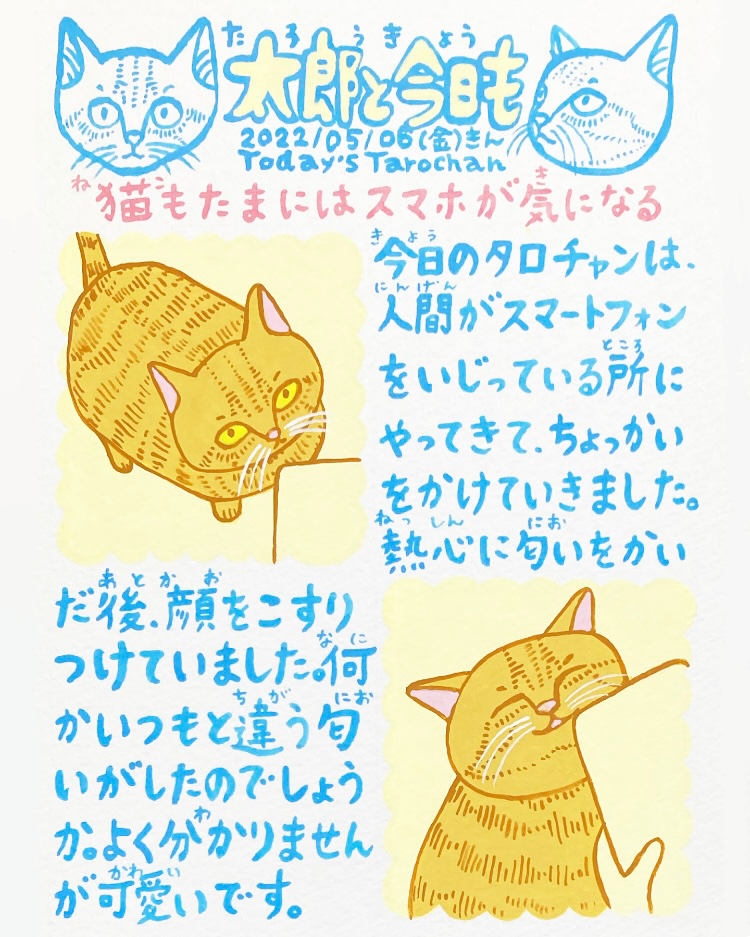 たろうきょう
太郎と今日も
2022/05/06(金)きん
Today's Tarochan
ね き
猫もたまにはスマホが気になる
きょう
今日のタロチャンは、
にんげん
人間がスマートフォン
ところ
をいじっている所に
やってきて、ちょっかい
をかけていきました。
ねっしん にお
熱心に匂いをかい
あと かお
だ後、顔をこすり
なに
つけていました。何
ちが にお
かいつもと違う匂
いがしたのでしょう
わ
か。よく分かりません
かわい
が可愛いです。